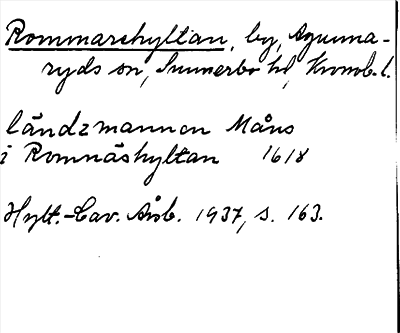 Rommarehyltan, by, Agunna-
ryds sn, Sunnerbo hd, Kronob. l.
ländzmannen Måns
i Romnåshyltan 1618
Hylt.-Cav. Årsb. 1937, s. 163.